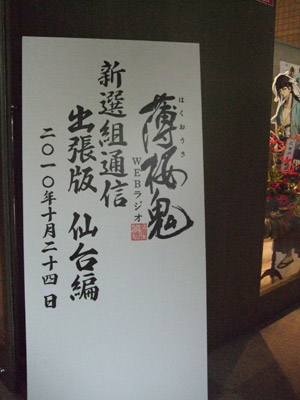 はくおうき
薄桜鬼
WEBラジオ
新選組通信
出張版 仙台編
二〇一〇年十月二十四日